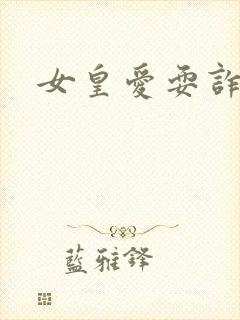 女皇愛耍詐
藍雅鋒